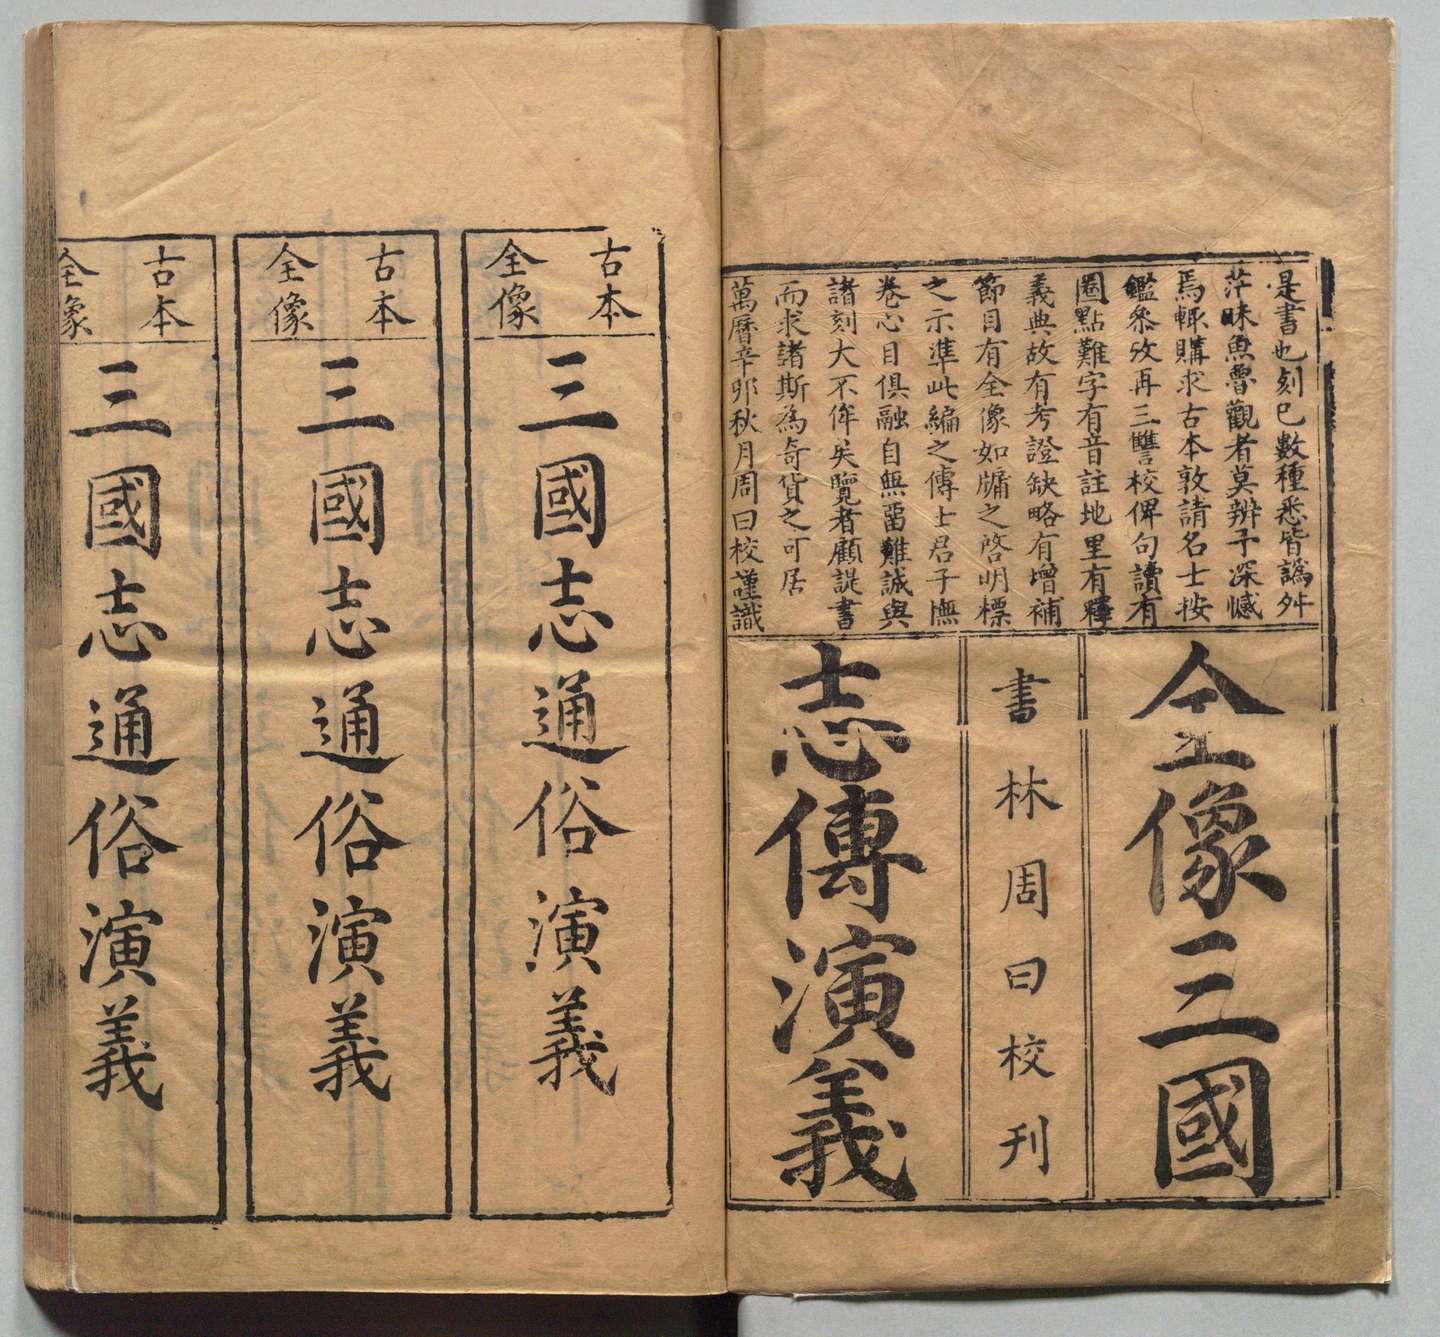 是書也刻已數種悉皆譌舛
茫昧魚魯觀者莫辨予深憾
焉輙購求古本敦請名士按
鑑叅攷再三讐校俾句讀有
圈點難字有音註地里有釋
義典故有考證缺略有增補
節目有全像如牖之啓明標
之示準此編之傳士君子撫
卷心目俱融自無留難誠與
諸刻大不侔矣覽者顧諟書
而求諸斯為奇貨之可居
萬曆辛卯秋月周曰校謹識
全像三國
書林周曰校刊
志傳演義
古本
全像
三國志通俗演義
古本
全像
三國志通俗演義
古本
全像
三國志通俗演義